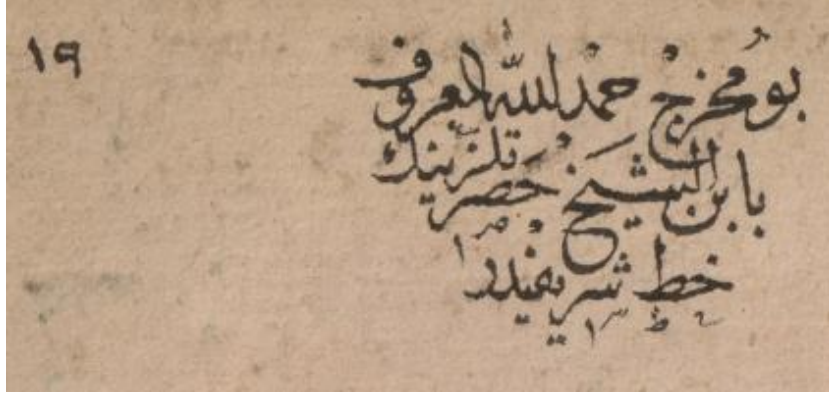 ١٩
بو مخرج حمد الله المعروف
بابن الشيخ حضرتلرينك
خط شريفيدر